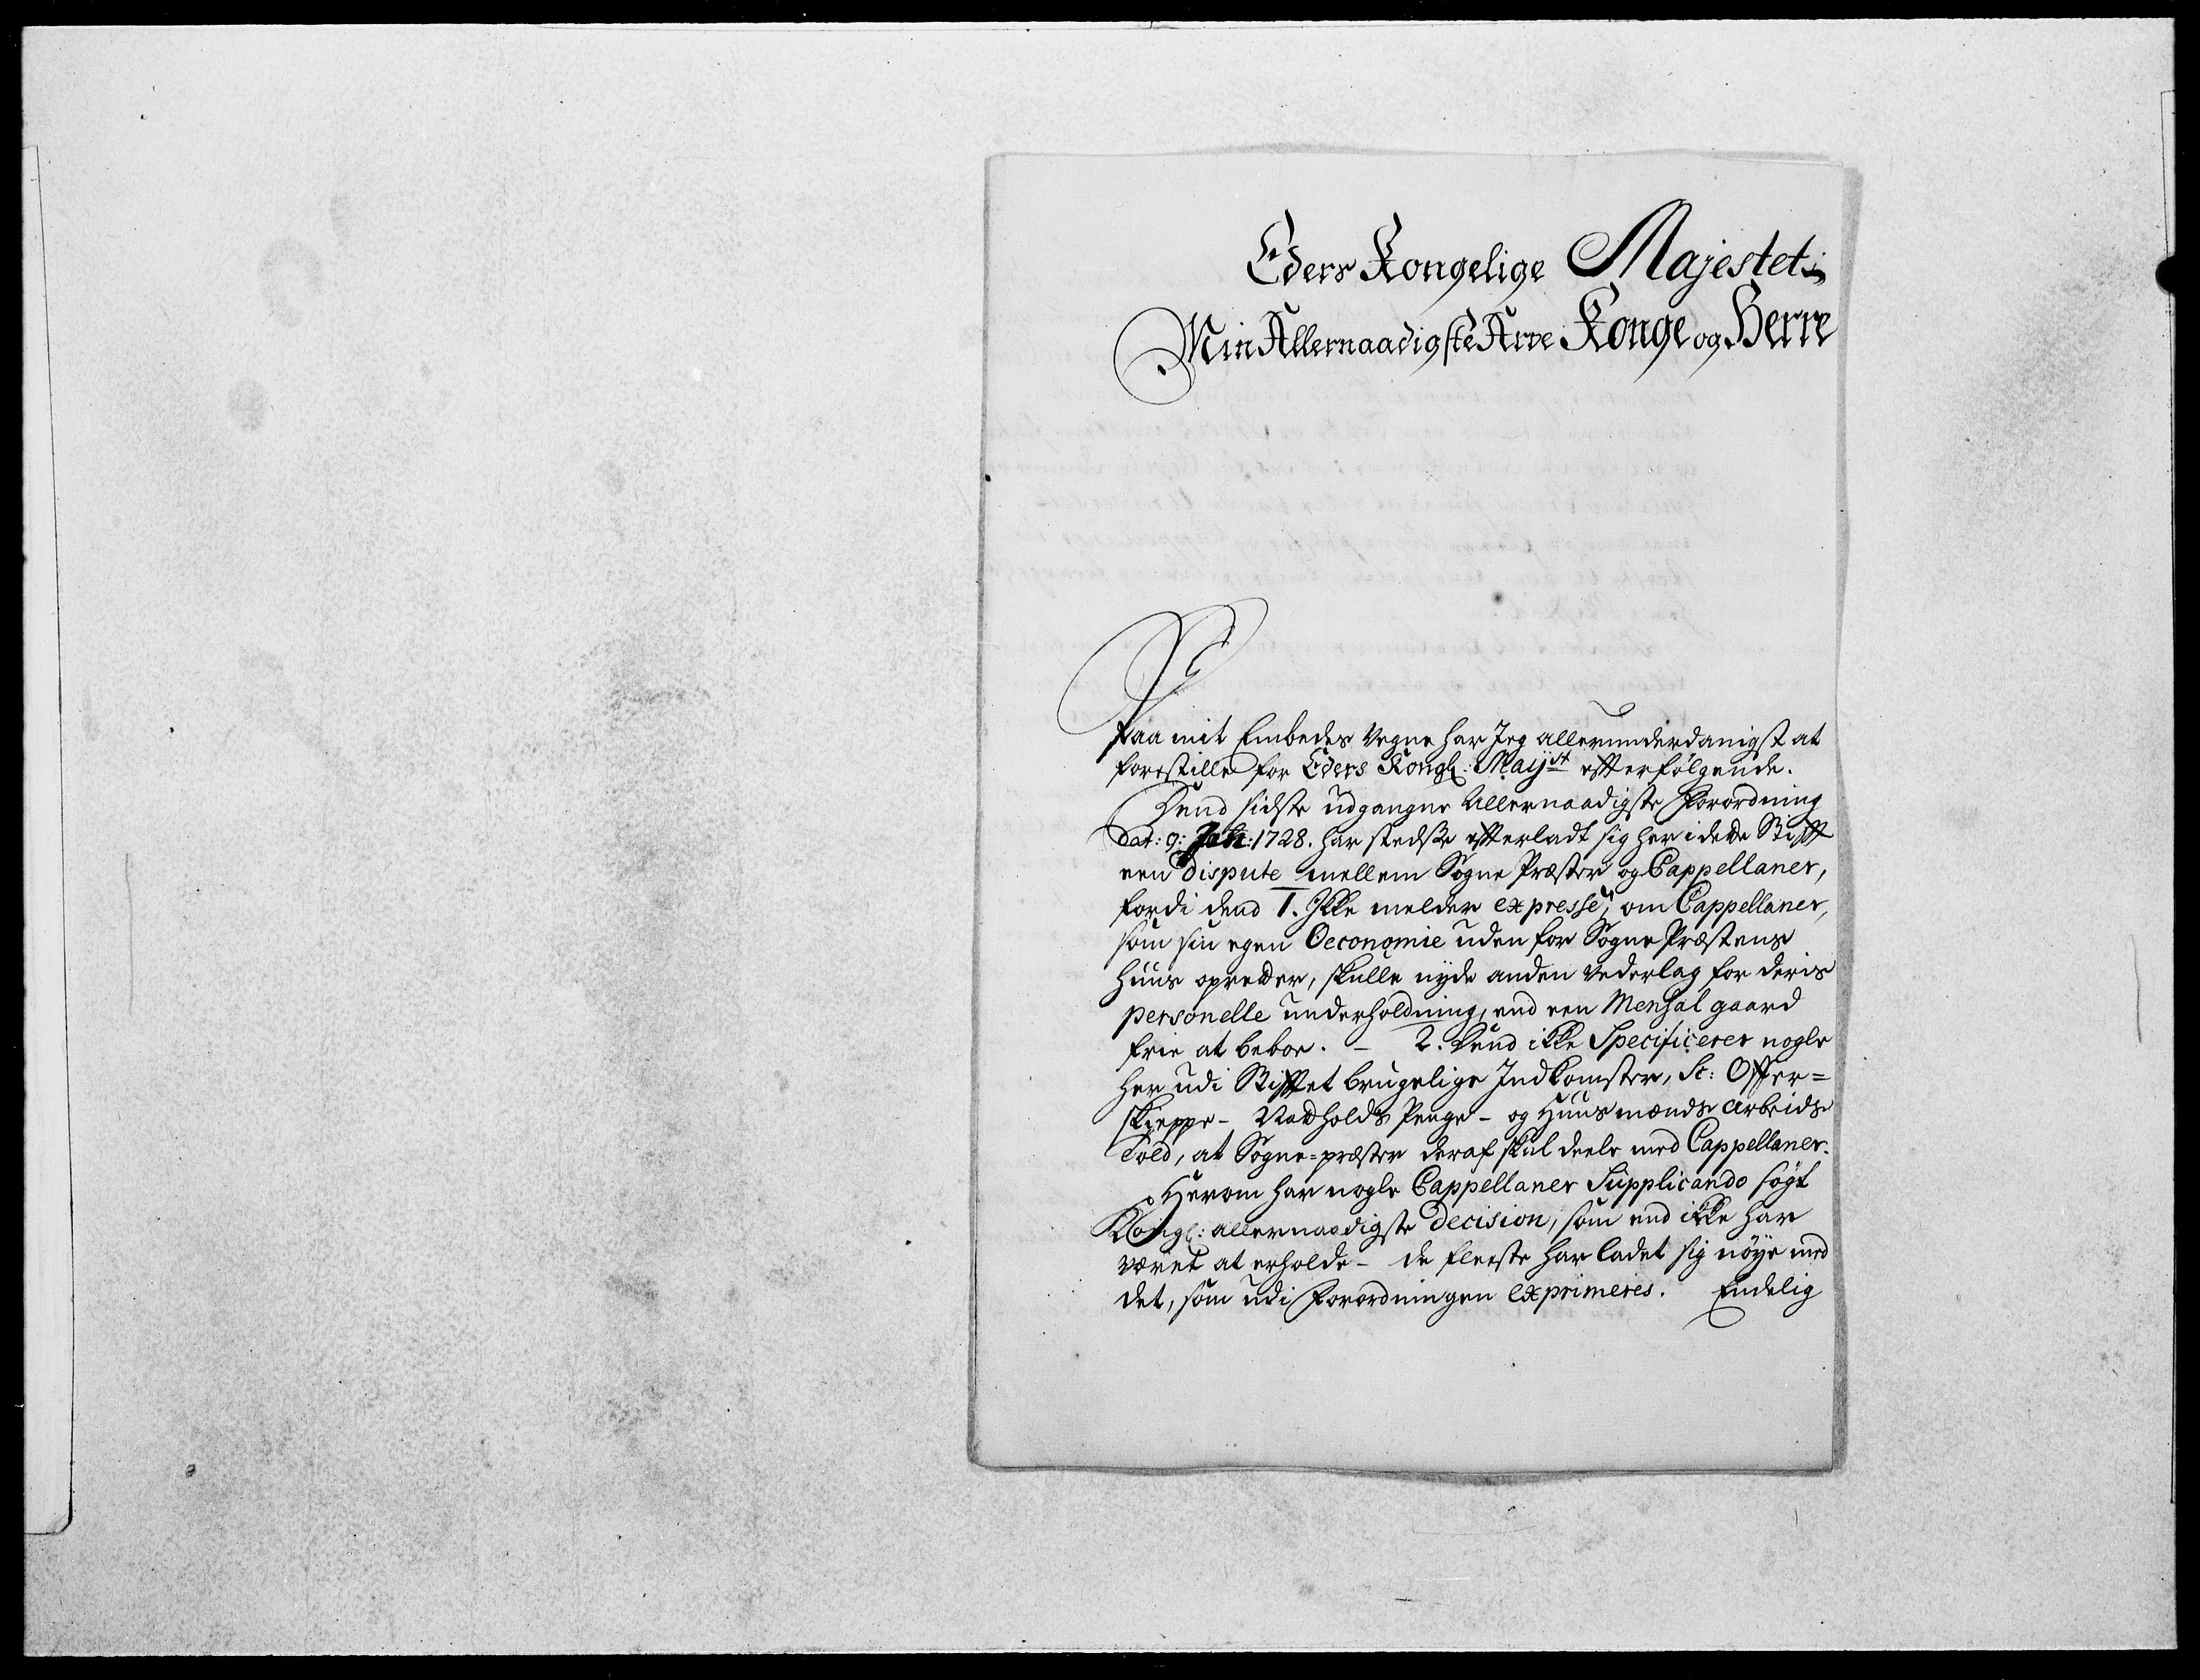 Eders Kongelige Majestet
Min Allernaadigste Arve Konge og Herre
Paa mit Embedes Vegne har Jeg allerunderdanigst at
forestille for Eders Kongl: Mayst efterfølgende.
Dend sidste udgangne Allernaadigste Forordning
dat: 9: Jan: 1728. har stedse efterladt sig her i dette Stifft
een dispute mellem Sogne Præster og Cappellaner,
fordi dend 1. Ikke melder expresse, om Cappellaner,
som sin egen Oeconomie uden for Sogne Præstens
Huus opretter, skulle nyde anden Vederlag for deris
personelle underholdning, end een Mensal gaard
frie at beboe. - 2. Dend ikke Specificerer nogle
her udi Stifftet brugelige Indkomster, Sc: Offer=
skieppe - Nattholds Penge - og Huusmænds Arbeids
told, at Sogne-præster deraf skul deele med Cappellaner.
Herom har nogle Cappellaner Supplicando søgt
Kongl: allernaadigste decision, som end ikke har
været at erholde - de fleeste har ladet sig nøye med
det, som udi Forordningen exprimeres. Endelig